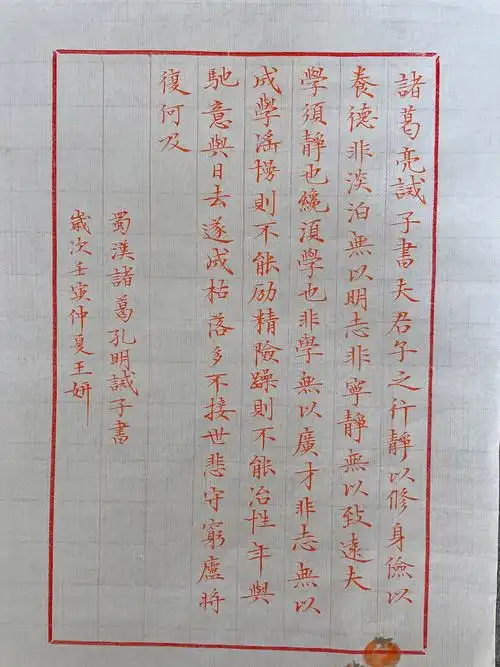 諸葛亮誡子書夫君子之行靜以修身儉以
養德非淡泊無以明志非寧靜無以致遠夫
學須靜也纔須學也非學無以廣才非志無以
成學滛慢則不能励精險躁則不能冶性年與
馳意與日去遂成枯落多不接世悲守窮廬將
復何及
蜀漢諸葛孔明誡子書
歲次壬寅仲夏王妍